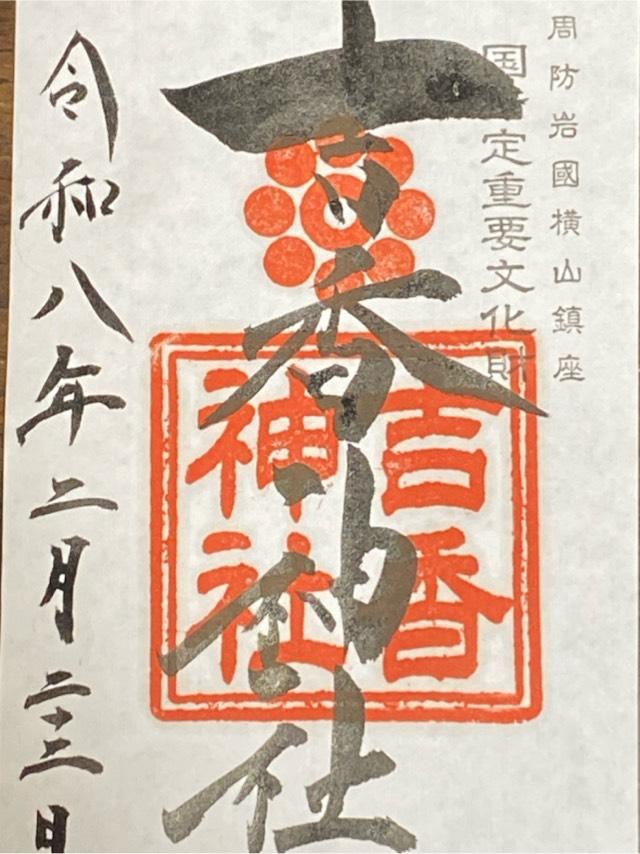 周防岩國横山鎮座
国指定重要文化財
吉香神社
吉香
神社
令和八年二月二十二日